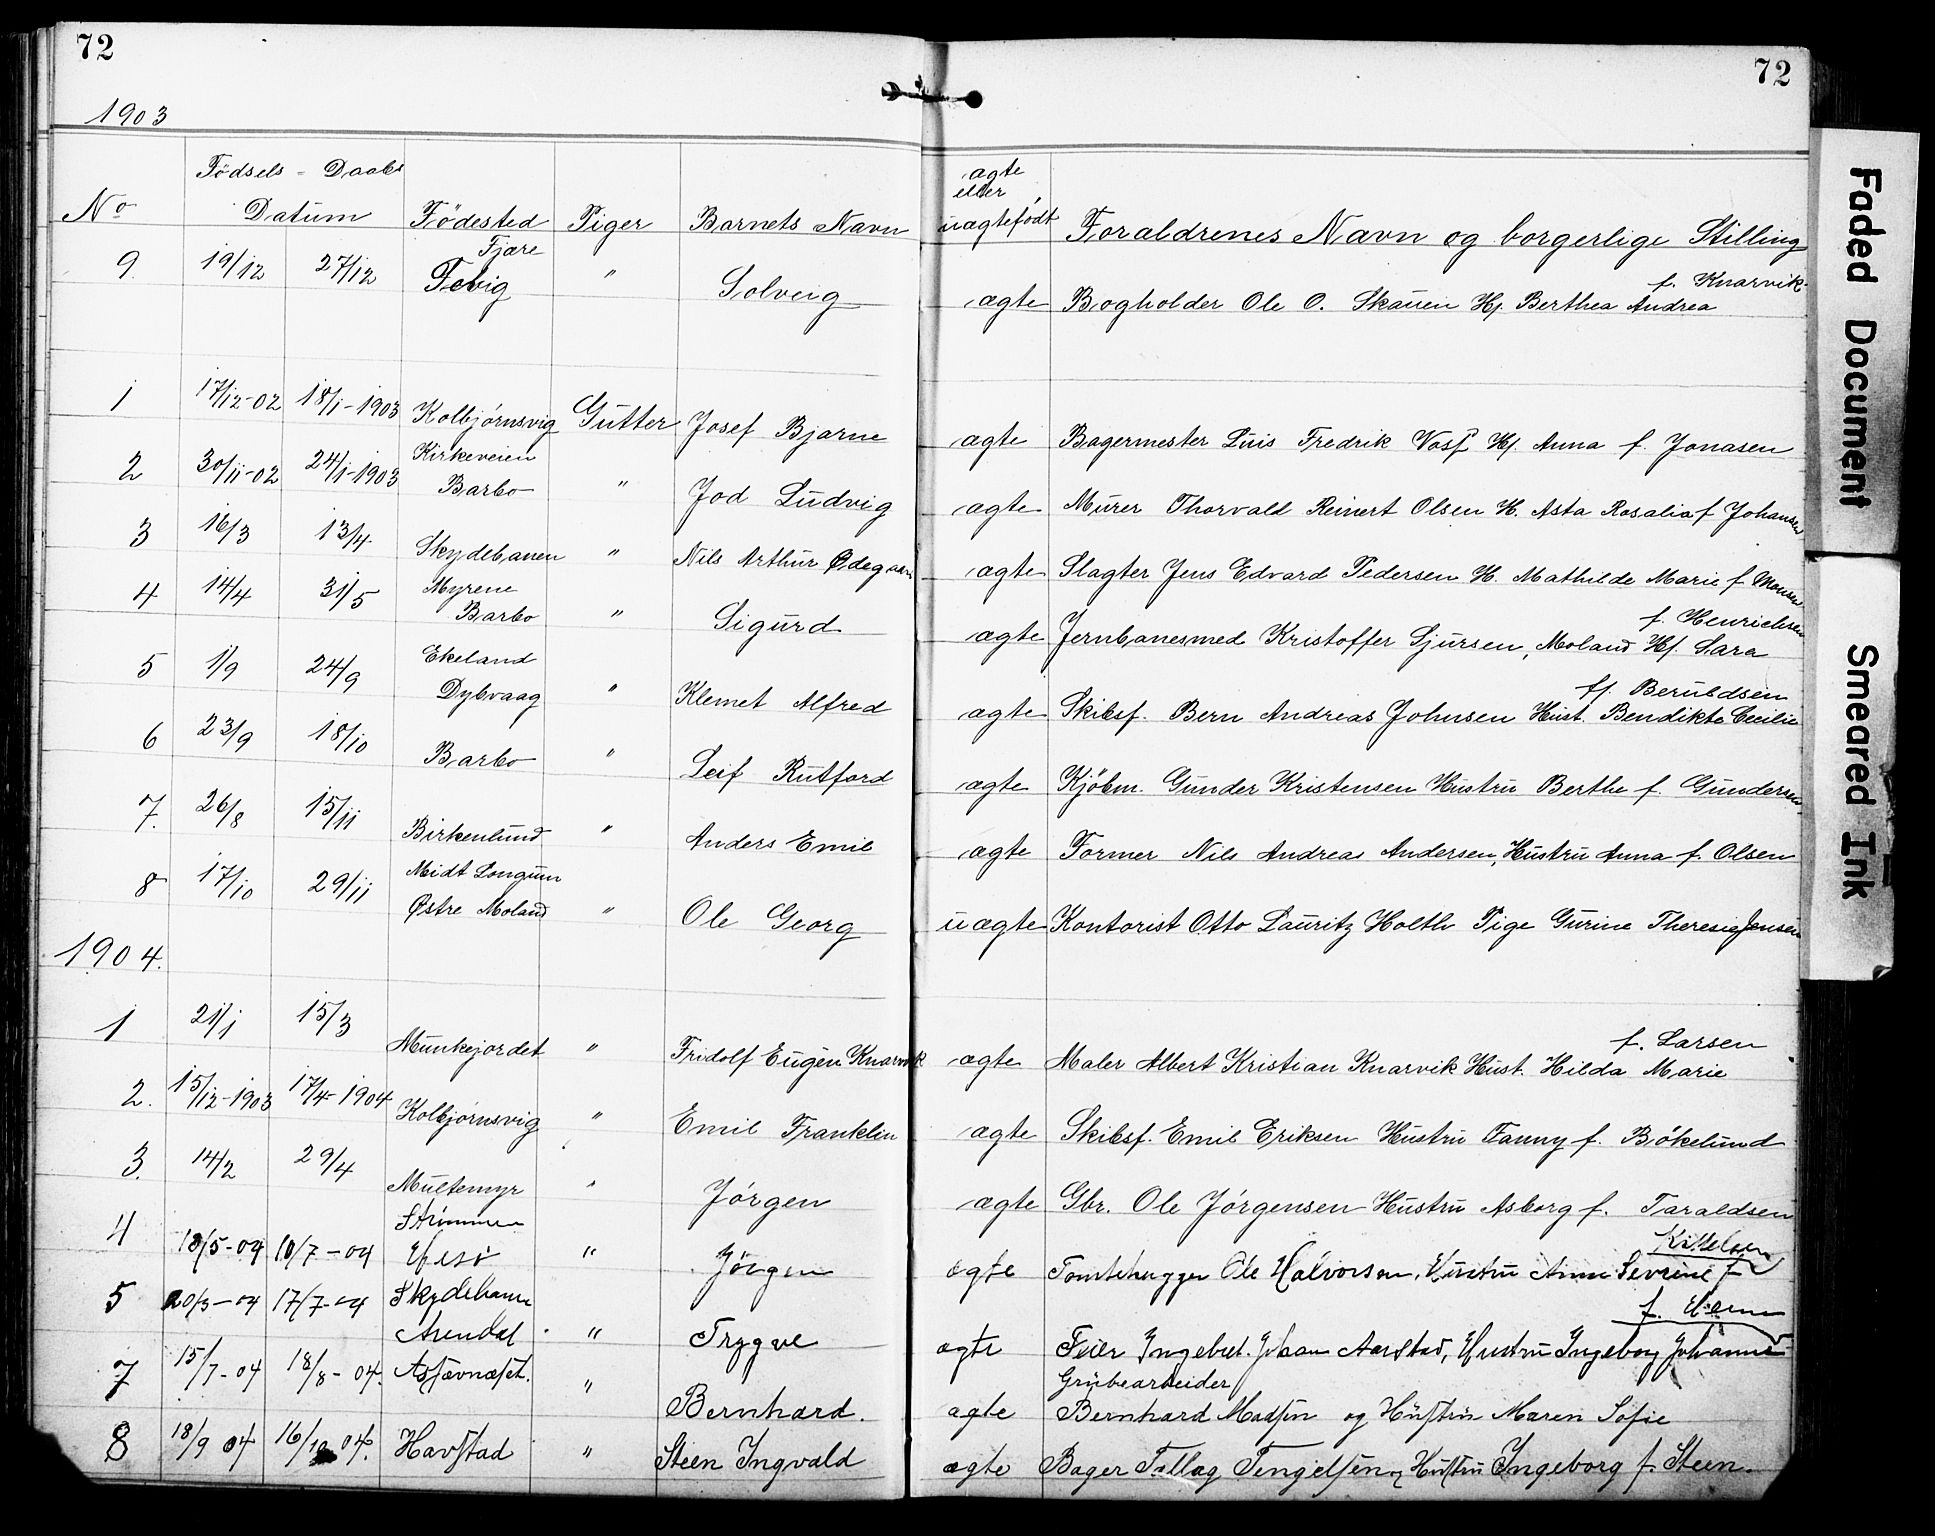 72
72
1903
Födsels - Daabs
No Datum Födested Piger Barnets Navn
ægte
eller
uægtefödt Foræld­renes Navn og borgerlige Stilling
9. 19/12 27/12 Fjære
Fevig " Solveig ægte Bogholder Ole O. Skauen Hj. Berthea Andrea
f. Knarvik
1 17/12-02 18/1-1903 Kolbjörnsvig Gutter Josef Bjarne ægte Bagermester Luis Fredrik Voss Hj. Anna f. Jonasen
2 30/11-02 24/1-1903 Kirkeveien
Barbo " Jod Ludvig ægte Murer Thorvald Reinert Olsen H. Asta Rosalia f Johansen
3 16/3 13/4 Skydebanen " Nils Arthur Ødegaard ægte Slagter Jens Edvard Pedersen H. Mathilde Marie f Monsen
4 14/4 31/5 Myrene
Barbo " Sigurd ægte Jernbanesmed Kristoffer Sjursen, Moland Hj. Sara
f. Henrichsen
5 1/9 24/9 Ekeland
Dybvaag " Klemet Alfred ægte Skibsf. Bern Andreas Johnsen Hust. Bendikte Cecilie
f. Beruldsen
6 23/9 18/10 Barbo " Leif Rutford ægte Kjöbm. Gunder Kristensen Hustru Berthe f. Gundersen
7. 26/8 15/11 Birkenlund " Anders Emil ægte Former Nils Andreas Andersen, Hustru Anna f. Olsen
8 17/10 29/11 Midt Longum
Østre Moland " Ole Georg uægte Kontorist Otto Lauritz Holth Pige Gurine Theresie Jensen
1904.
1 21/1 15/3 Munkejordet " Fridolf Eugén Knarvik ægte Maler Albert Kristian Knarvik Hust. Hilda Marie
f. Larsen
2. 15/12-1903 17/4-1904 Kolbjörnsvig " Emil Franklin ægte Skibsf. Emil Eriksen Hustru Fanny f. Bökelund
3. 14/2 29/4 Multemyr " Jörgen ægte Gbr. Ole Jörgensen Hustru Asborg f. Taraldsen
4 18/5-04 10/7-04 Strömmen
Hisö " Jörgen ægte Tomtehugger Ole Halvorsen, Hustru Anne Sevrine f
Kittelsen
5 20/3-04 17/7-04 Skydebanen
Arendal " Trygve ægte Feier Ingebret. Johan Aarstad, Hustru Ingeborg Johanne
7 15/7-04 18/8-04. " Bernhard. ægte Grubearbeider
Bernhard Madsen og Hustru Maren Sofie
8 18/9 04 16/10 04. Havstad " Steen Ingvald ægte Bager Tallag Tengelsen og Hustru Ingeborg f. Steen.
Faded Document
Smeared Ink